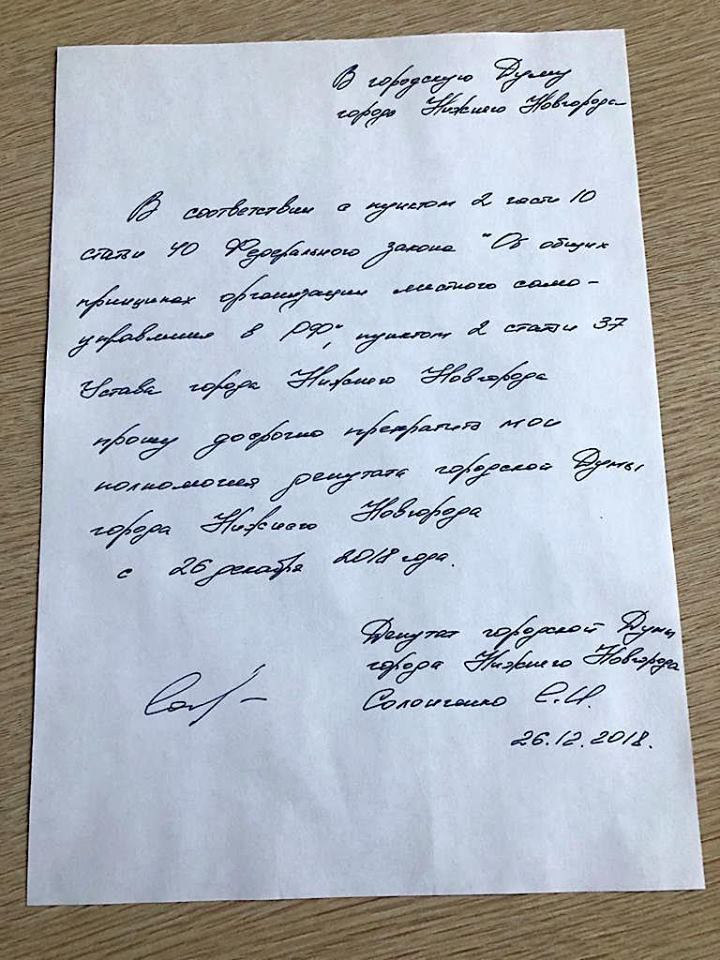 В городскую Думу
города Нижнего Новгорода
В соответствии с пунктом 2 части 10
статьи 40 Федерального закона "Об общих
принципах организации местного само-
управления в РФ", пунктом 2 статьи 37
Устава города Нижнего Новгорода
прошу досрочно прекратить мои
полномочия депутата городской Думы
города Нижнего Новгорода
с 26 декабря 2018 года.
Депутат городской Думы
города Нижнего Новгорода
Солонченко С.И.
26.12.2018.